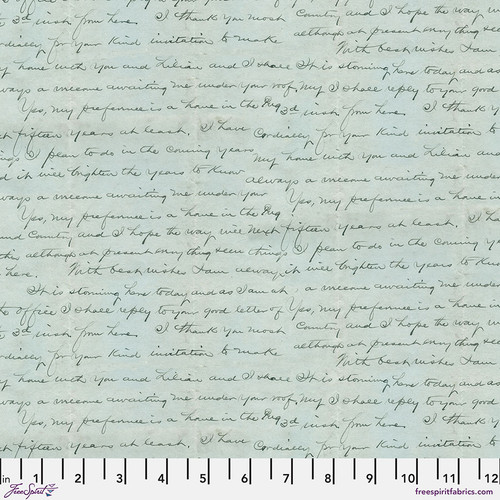 3d inst from here. I thank you most Country, and I hope the way will
Cordially, for your kind invitation to make although at present everything seem
With best wishes I am
my home with you and Lilian and I shall It is storming here today and as
always a welcome awaiting me under your roof, my I shall reply to your good
Yes, my preference is a home in the 3d inst from here. I thank y
fifteen years at least. I have Cordially, for your kind invitation to
things I plan to do in the coming years my home with you and Lilian and
it will brighten the years to know always a welcome awaiting me under
always a welcome awaiting me under your
Yes, my preference is a home in the
and Country, and I hope the way will next fifteen years at least. I
although at present everything seem things I plan to do in the coming y
here. With best wishes I am always, it will brighten the years to know
It is storming here today and as I am at, a welcome awaiting me under
office I shall reply to your good letter of Yes, my preference is a home in
3d inst from here. I thank you most Country, and I hope the way will
Cordially, for your kind invitation to make although at present everything seem
With best wishes I am
my home with you and Lilian and I shall It is storming here today and as
always a welcome awaiting me under your roof, my I shall reply to your good
Yes, my preference is a home in the 3d inst from here. I thank y
fifteen years at least. I have Cordially, for your kind invitation to
in 1 2 3 4 5 6 7 8 9 10 11 12
FreeSpirit
freespiritfabrics.com